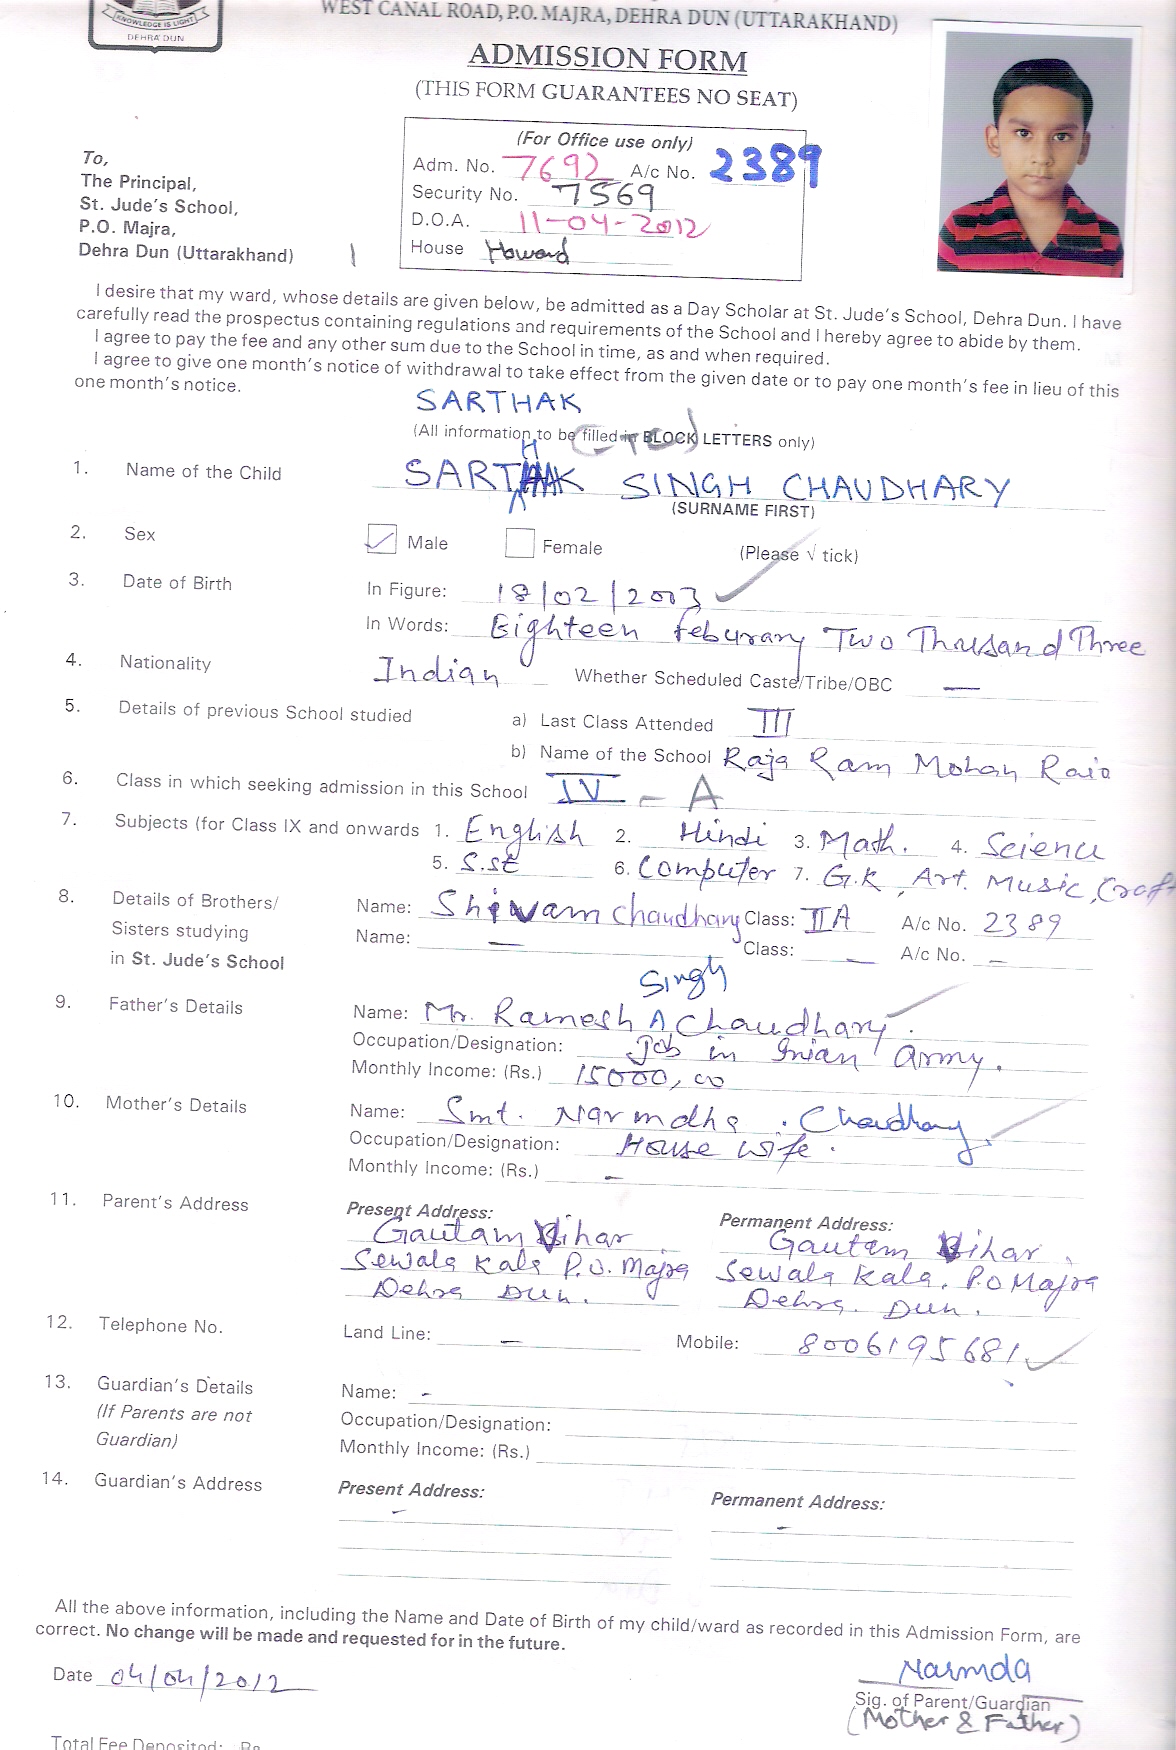 KNOWLEDGE IS LIGHT
DEHRA DUN
WEST CANAL ROAD, P.O. MAJRA, DEHRA DUN (UTTARAKHAND)
ADMISSION FORM
(THIS FORM GUARANTEES NO SEAT)
(For Office use only)
Adm. No. 7692 A/c No. 2389
Security No. 7569
D.O.A. 11-04-2012
House Howard
To,
The Principal,
St. Jude's School,
P.O. Majra,
Dehra Dun (Uttarakhand)
I desire that my ward, whose details are given below, be admitted as a Day Scholar at St. Jude's School, Dehra Dun. I have
carefully read the prospectus containing regulations and requirements of the School and I hereby agree to abide by them.
I agree to pay the fee and any other sum due to the School in time, as and when required.
I agree to give one month's notice of withdrawal to take effect from the given date or to pay one month's fee in lieu of this
one month's notice.
SARTHAK
(All information to be filled in BLOCK LETTERS only)
1. Name of the Child SARTHAK SINGH CHAUDHARY
(SURNAME FIRST)
2. Sex Male Female (Please √ tick)
3. Date of Birth In Figure: 18/02/2003
In Words: Eighteen feburary Two Thousand Three
4. Nationality Indian Whether Scheduled Caste/Tribe/OBC —
5. Details of previous School studied a) Last Class Attended III
b) Name of the School Raja Ram Mohan Raio
6. Class in which seeking admission in this School IV - A
7. Subjects (for Class IX and onwards 1. English 2. Hindi 3. Math. 4. Science
5. S.St 6. Computer 7. G.K, Art. Music, Craft
8. Details of Brothers/ Name: Shivam Chaudhary Class: II A A/c No. 2389
Sisters studying Name: — Class: — A/c No. —
in St. Jude's School
Singh
9. Father's Details Name: Mr. Ramesh Chaudhary.
Occupation/Designation: Job in Inian Army.
Monthly Income: (Rs.) 15000,00
10. Mother's Details Name: Smt. Narmdha. Chaudhary.
Occupation/Designation: House wife.
Monthly Income: (Rs.) —
11. Parent's Address Present Address: Permanent Address:
Gautam Vihar Gautam Vihar,
Sewala Kala P.O. Majra Sewala Kala. P.O Majra
Dehra Dun. Dehra. Dun.
12. Telephone No. Land Line: — Mobile: 8006195681
13. Guardian's Details Name: -
(If Parents are not Occupation/Designation:
Guardian) Monthly Income: (Rs.)
14. Guardian's Address Present Address: Permanent Address:
- -
All the above information, including the Name and Date of Birth of my child/ward as recorded in this Admission Form, are
correct. No change will be made and requested for in the future.
Date 04/04/2012 Narmda
Sig. of Parent/Guardian
(Mother & Father)
Total Fee Deposited: Rs